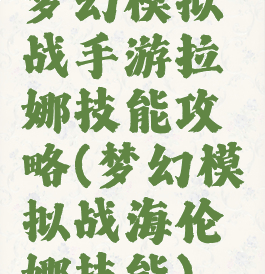 梦幻模拟
战手游拉
娜技能攻
略(梦幻模
拟战海伦
娜技能)